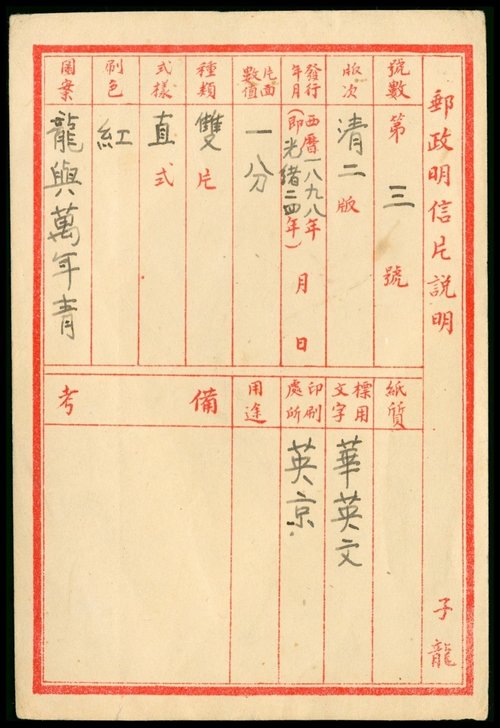 郵政明信片說明
子龍
號數
第三號
版次
清二版
發行年月
西曆一八九八年
(即光緒二四年)
月日
片面數值
一分
種類
雙片
式樣
直式
刷色
紅
圖案
龍與萬年青
紙質
標用文字
華英文
印刷處所
英京
用途
備考